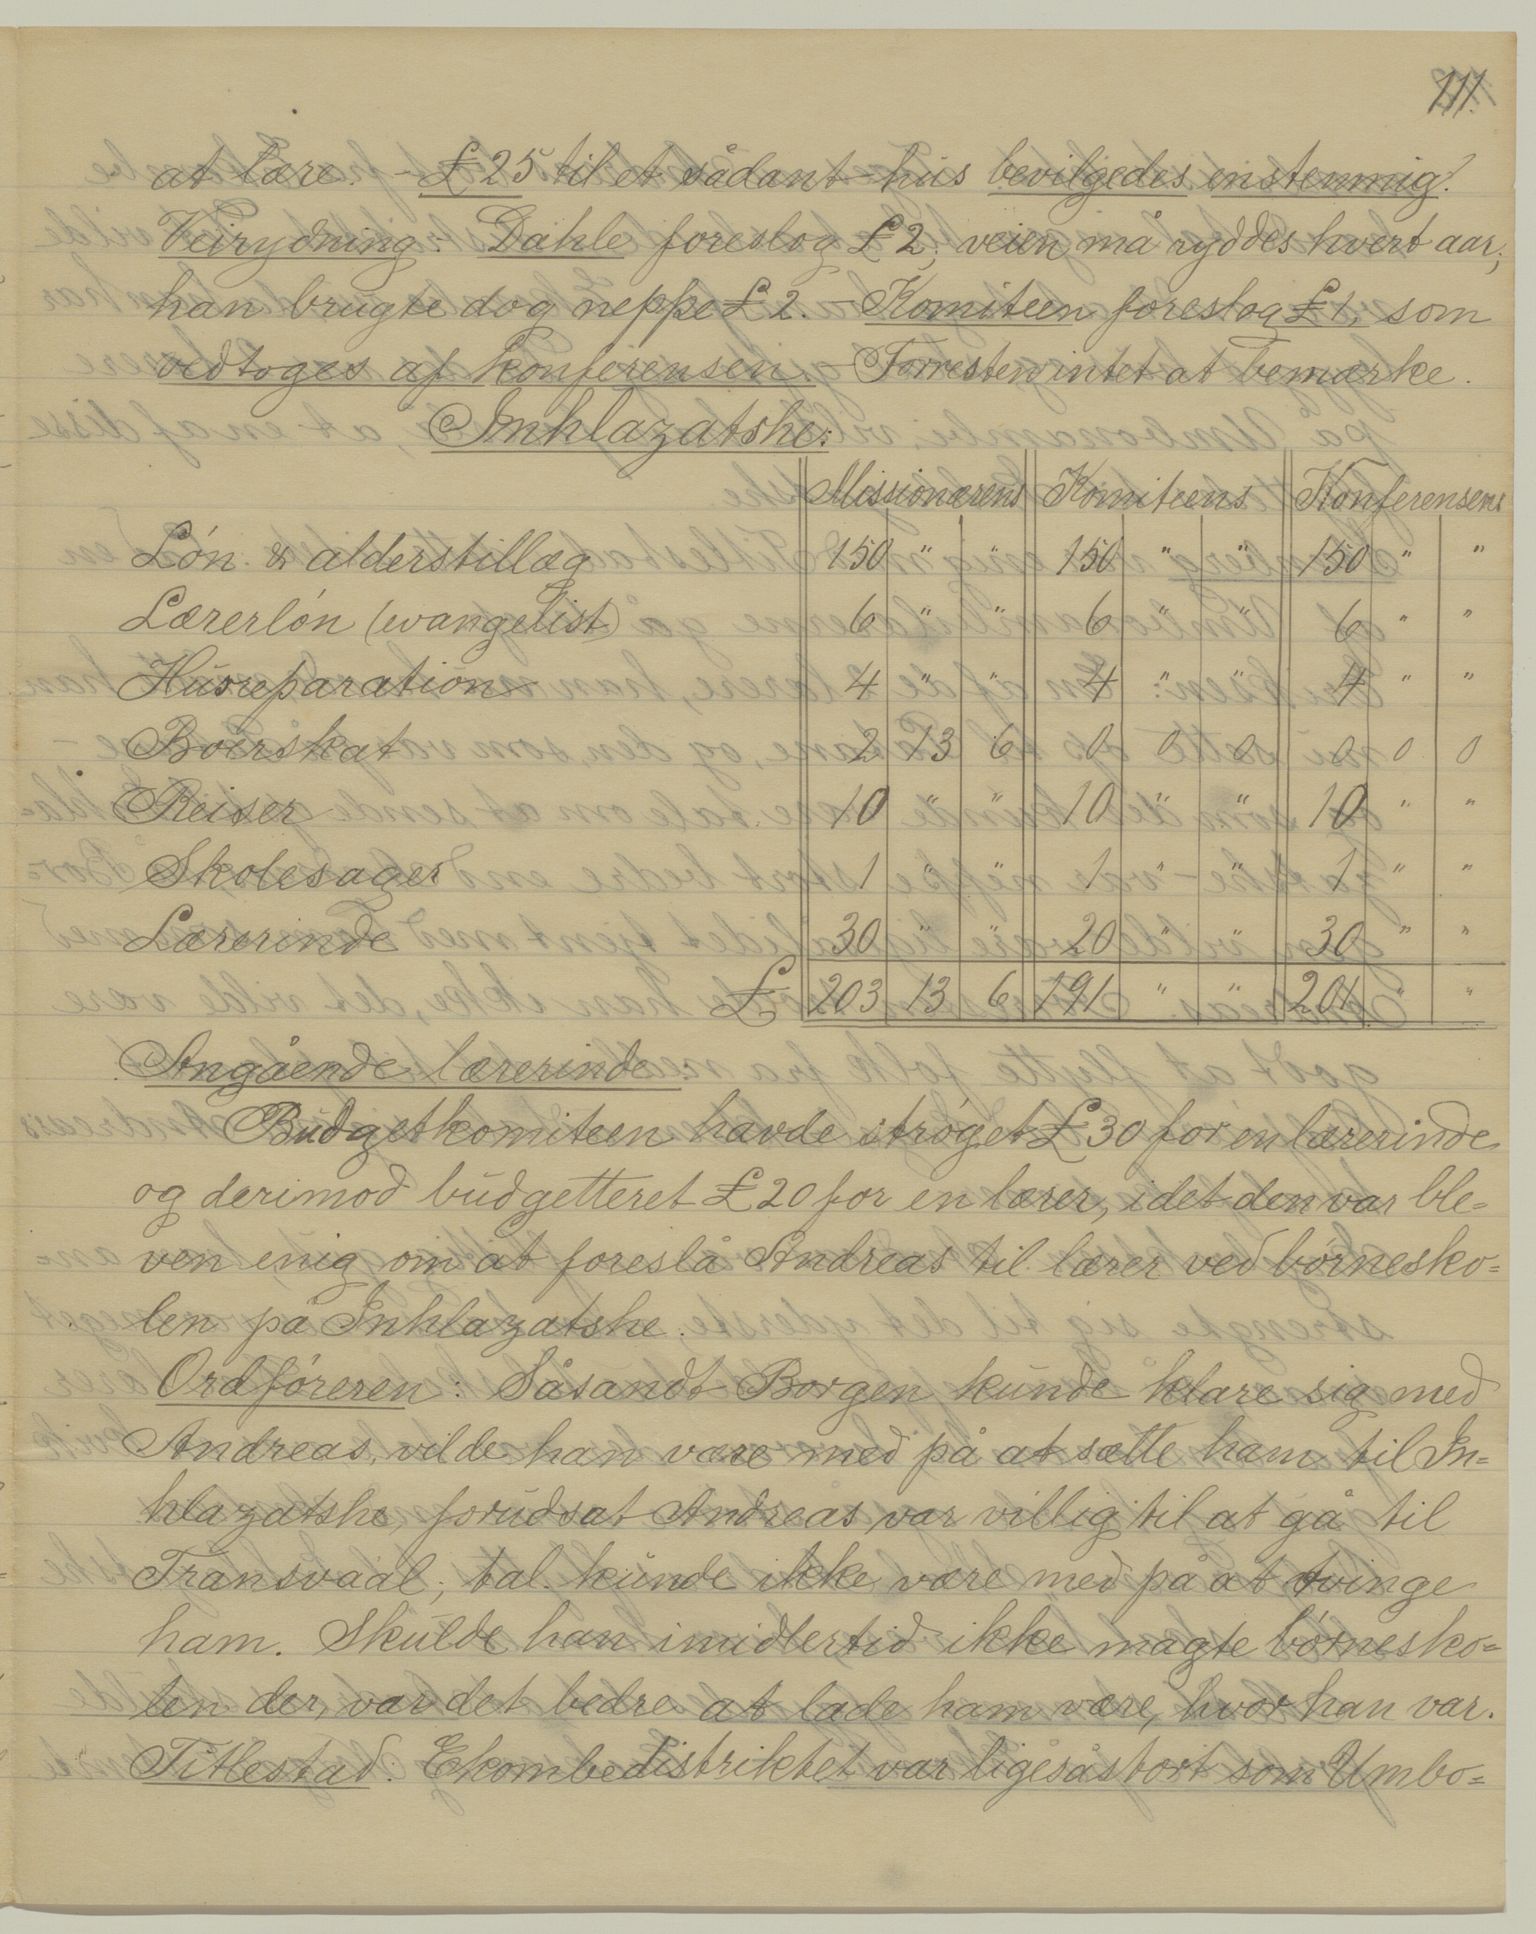 111.
at lære. - £25 til et sådant hus bevilgedes enstemmig.
Veirydning: Dahle foreslog £2; veien må ryddes hvert aar;
han brugte dog neppe £2. - Komiteen foreslog £1, som
vedtoges af konferensen. - Forresten intet at bemærke.
Inhlazatshe:
Missionærens Komiteens Konferensens
Lón & alderstillæg 150 " " 150 " " 150 " "
Lærerlón (evangelist) 6 " " 6 " " 6 " "
Husreparation 4 " " 4 " " 4 " "
Boerskat 2 13 6 0 0 0 0 0 0
Reiser 10 " " 10 " " 10 " "
Skolesager 1 " " 1 " " 1 " "
Lærerinde 30 " " 20 " " 30 " "
£ 203 13 6 191 " " 201 " "
Angående lærerinde
Budgetkomiteen havde stróget £30 for en lærerinde
og derimod budgetteret £20 for en lærer, idet den var ble=
ven enig om at foreslå Andreas til lærer ved bórnesko=
len på Inhlazatshe.
Ordfóreren: Såsandt Borgen kunde klare sig med
Andreas, vilde han være med på at sætte ham til In=
hlazatshe, forudsat Andreas var villig til at gå til
Transvaal; tal. kunde ikke være med på at tvinge
ham. Skulde han imidlertid ikke magte bórnesko=
len der, var det bedre at lade ham være, hvor han var.
Titlestad: Ekombedistriktet var ligesåstort som Umbo=